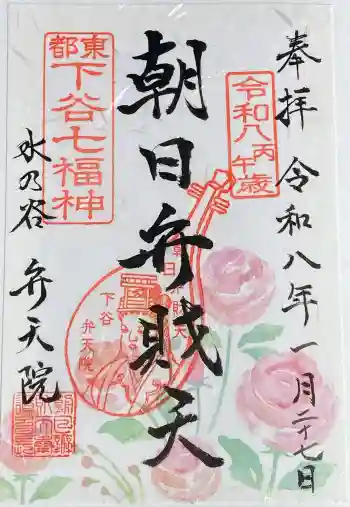 奉拝 令和八年一月二十七日
令和八
丙午歳
朝日弁財天
東都
下谷七福神
朝日弁財天
下谷
弁天院
水の谷 弁天院